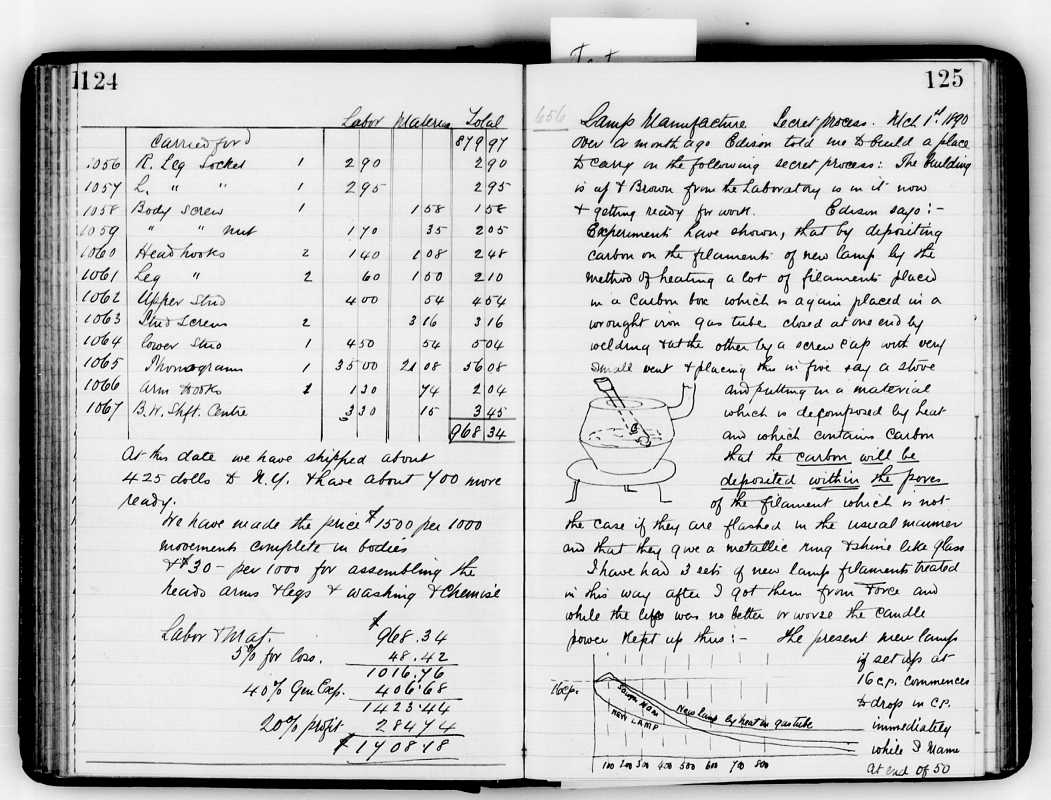 124
Labor Materials Total
Carried for'd 879 97
1056 R. Leg Socket 1 2 90 2 90
1057 L. " " 1 2 95 2 95
1058 Body Screw 1 1 58 1 58
1059 " " nut 1 70 35 2 05
1060 Head hooks 2 1 40 1 08 2 48
1061 Leg " 2 60 1 50 2 10
1062 Upper Stud 4 00 54 4 54
1063 Stud Screws 2 3 16 3 16
1064 Lower Stud 1 4 50 54 5 04
1065 Phonograms 1 35 00 21 08 56 08
1066 Arm Hooks 2 1 30 74 2 04
1067 B.W. Shft. Centre 3 30 15 3 45
968 34
At this date we have shipped about
425 dolls to N.Y. & have about 400 more
ready.
We have made the price $1500 per 1000
movements complete in bodies
& $30- per 1000 for assembling the
heads arms & legs & washing & Chemise
Labor & Mat. $ 968.34
5% for loss. 48.42
1016.76
40% Gen Exp. 406.68
1423.44
20% profit 284 74
$ 1708.18
Test
125
656 Lamp Manufacture Secret process. Mch 1st 1890
Over a month ago Edison told me to build a place
to carry on the following secret process: The building
is up & Brown from the Laboratory is in it now
& getting ready for work. Edison says:-
Experiments have shown, that by depositing
carbon on the filaments of new lamp by the
method of heating a lot of filaments placed
in a Carbon box which is again placed in a
wrought iron gas tube closed at one end by
welding & at the other by a screw cap with very
small vent & placing this in fire say a stove
and putting in a material
which is decomposed by heat
and which contains carbon
that the carbon will be
deposited within the pores
of the filament which is not
the case if they are flashed in the usual manner
and that they give a metallic ring & shine like glass
I have had 3 sets of new lamp filaments treated
in this way after I got them from Force and
while the life was no better or worse the candle
power kept up thus:- The present new lamp
if set up at
16 c.p. commences
to drop in C.P.
immediately
while I have
at end of 50
16 cp.
New lamp by heat in gas tube
NEW LAMP
100 200 300 400 500 600 700 800